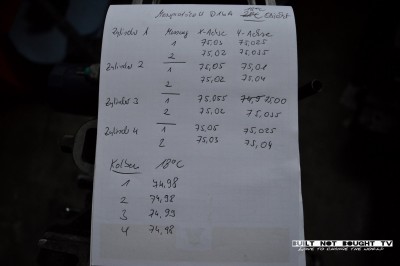 Messprotokoll
Zylinder 1 Messung X-Achse Y-Achse
1 75,03 75,025
2 75,02 75,035
Zylinder 2 1 75,05 75,01
2 75,02 75,04
Zylinder 3 1 75,055 75,00
2 75,02 75,035
Zylinder 4 1 75,05 75,025
2 75,03 75,04
Kolben 18°C
1 74,98
2 74,98
3 74,99
4 74,98
BUILT NOT BOUGHT TV